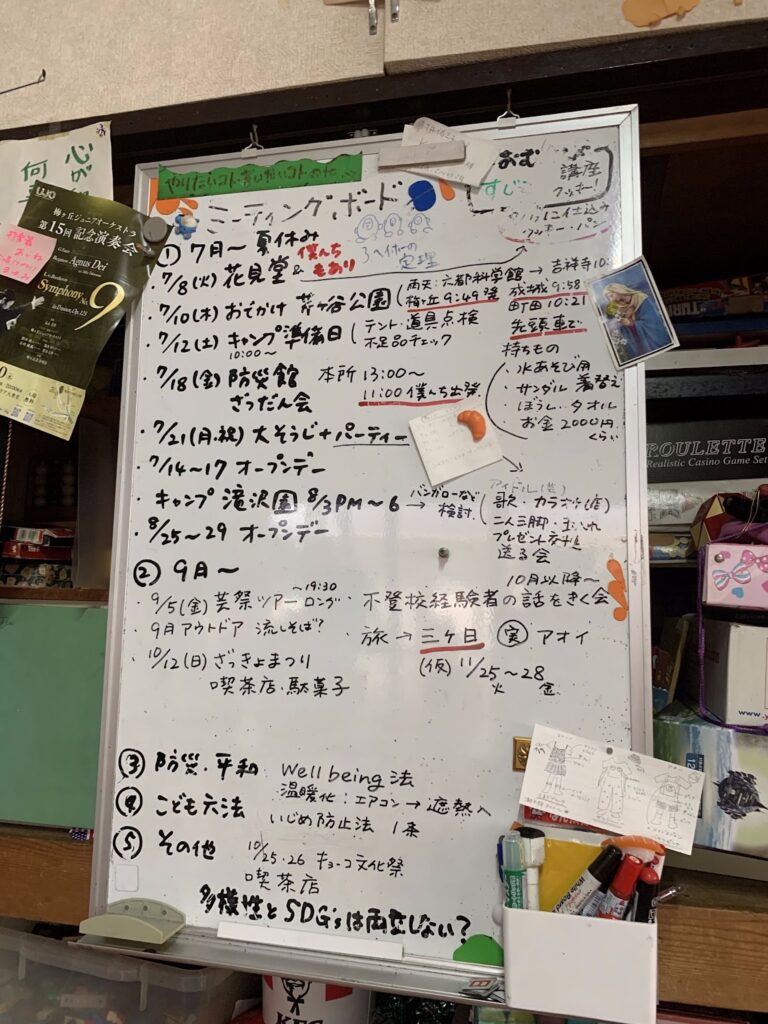 やりたいコト、言いたいコト
ミーティングボード
おむすび
講座
クッキー!
仕込み
クッキー・パン
3へいほーの
定理
① 7月〜 夏休み
・7/8(火) 花見堂 & 僕んち
もあり
・7/10(木) おでかけ 芹ヶ谷公園
雨天:六都科学館 → 吉祥寺10:
梅ヶ丘 9:49発
成城 9:58
町田 10:21
先頭車で
・7/12(土) キャンプ準備日
10:00〜
テント・道具点検
不足品チェック
持ちもの
・水あそび用
・サンダル 着替え
・ぼうし・タオル
・お金 2000円
くらい
・7/18(金) 防災館 本所 13:00〜
ざつだん会 11:00 僕んち出発
・7/21(月・祝) 大そうじ+パーティー
・7/14〜17 オープンデー
・キャンプ 滝沢園 8/3PM〜6 → バンガローなど
検討
アイドル
歌・カラオケ
二人三脚・玉いれ
プレゼント交換
送る会
・8/25〜29 オープンデー
② 9月〜
・9/5(金) 芸祭ツアー ロング
〜19:30
・9月アウトドア 流しそば?
・10/12(日) ざっきょまつり
喫茶店・駄菓子
10月以降〜
・不登校経験者の話をきく会
・旅 → 三ヶ日 実 アオイ
(仮) 11/25〜28
火 金
③ 防災・平和 Well being 法
④ こども六法 温暖化:エアコン → 遮熱へ
いじめ防止法 1条
⑤ その他 10/25・26 キョーコ文化祭
喫茶店
多様性とSDGsは両立しない?
UJO
梅ヶ丘ジュニアオーケストラ
第15回 記念演奏会
Agnus Dei
Symphony No.
9
心が
何
ROULETTE
Realistic Casino Game Set
White Board
KFC